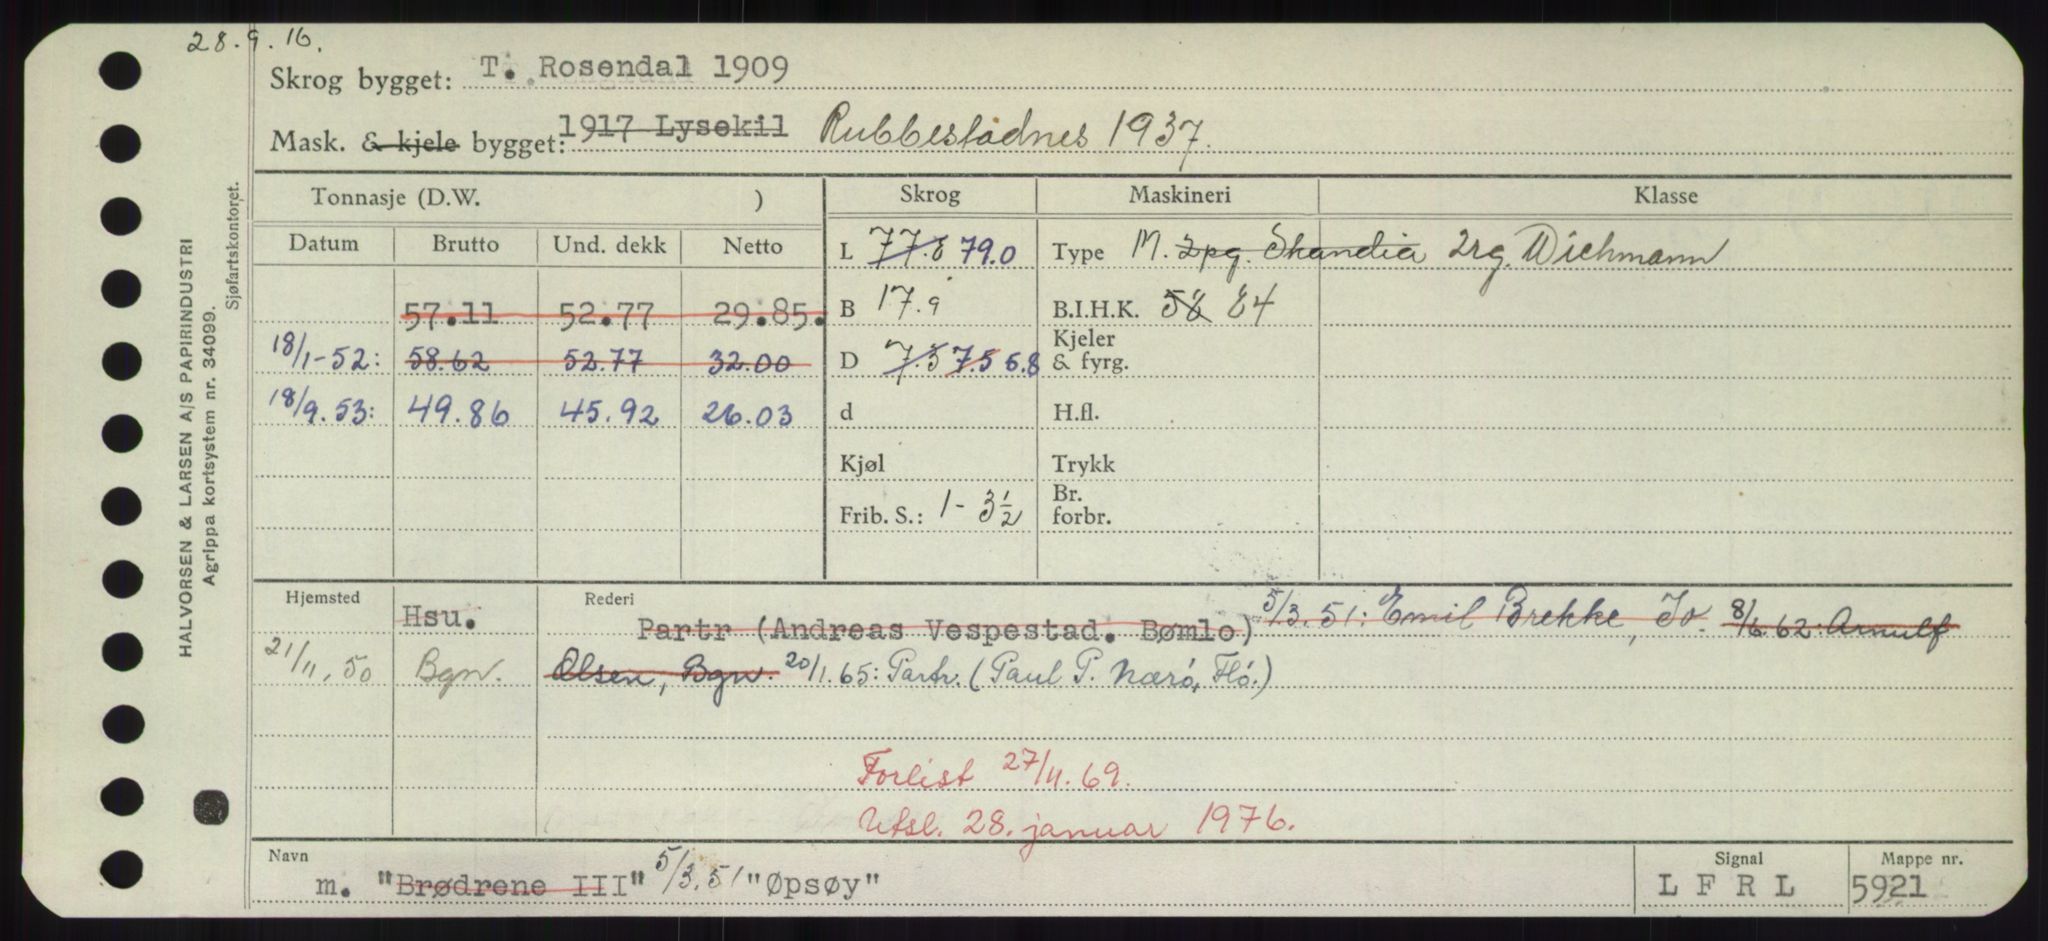 28.9.16.
Skrog bygget: T. Rosendal 1909
Mask. & kjele bygget: 1917 Lysekil Rubbestadnes 1937.
Tonnasje (D.W. ) Skrog Maskineri Klasse
Datum Brutto Und. dekk Netto L 77.8 79.0 Type M. 2pg. Skandia 2rg. Wichmann
57.11 52.77 29.85. B 17.9 B.I.H.K. 58 84
18/1-52: 58.62 52.77 32.00 D 7.5 7.5 6.8 Kjeler & fyrg.
18/9.53: 49.86 45.92 26.03 d H.fl.
Kjøl Trykk
Frib. S.: 1-3 1/2 Br. forbr.
Hjemsted Rederi
Hsu. Partr (Andreas Vespestad. Bømlo) 5/3.51: Emil Brekke, To. 8/6.62: Arnulf
21/11.50 Bgn. Olsen, Bgn. 20/1.65: Partr. (Paul P. Nærö, Flö.)
Forlist 27/11.69.
Utsl. 28. januar 1976.
Navn Signal Mappe nr.
m. "Brødrene III" 5/3.51 "Øpsøy" L F R L 5921
HALVORSEN & LARSEN A/S PAPIRINDUSTRI
Agrippa kortsystem nr. 34099.
Sjøfartskontoret.